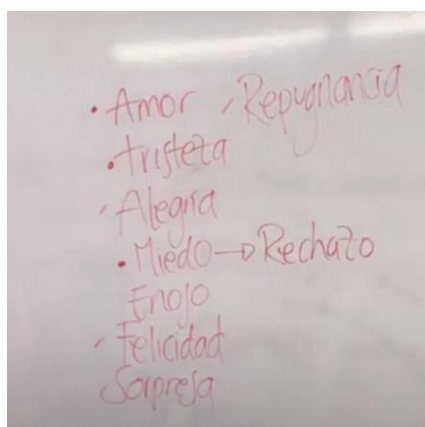 • Amor , Repugnancia
• tristeza
, Alegria
• Miedo → Rechazo
Enojo
- Felicidad
Sorpresa